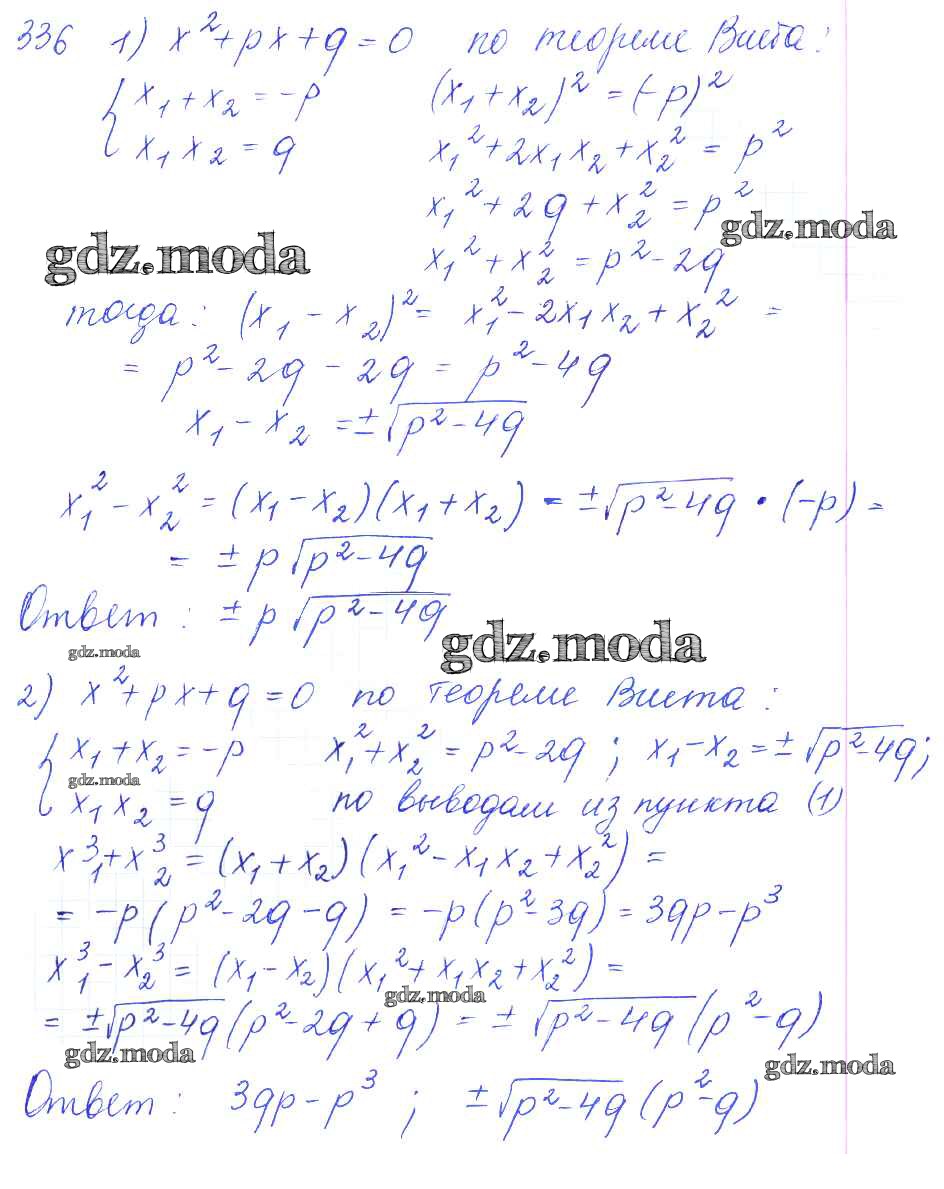 336 1) x² + px + q = 0 по теореме Виета:
{ x₁ + x₂ = -p (x₁ + x₂)² = (-p)²
x₁ x₂ = q x₁² + 2x₁x₂ + x₂² = p²
x₁² + 2q + x₂² = p²
gdz.moda
gdz.moda
x₁² + x₂² = p² - 2q
тогда: (x₁ - x₂)² = x₁² - 2x₁x₂ + x₂² =
= p² - 2q - 2q = p² - 4q
x₁ - x₂ = ±√(p² - 4q)
x₁² - x₂² = (x₁ - x₂)(x₁ + x₂) = ±√(p² - 4q) · (-p) =
= ± p √(p² - 4q)
Ответ: ± p √(p² - 4q)
gdz.moda
gdz.moda
2) x² + px + q = 0 по теореме Виета:
{ x₁ + x₂ = -p x₁² + x₂² = p² - 2q ; x₁ - x₂ = ±√(p² - 4q);
gdz.moda
x₁ x₂ = q по выводам из пункта (1)
x₁³ + x₂³ = (x₁ + x₂)(x₁² - x₁x₂ + x₂²) =
= -p(p² - 2q - q) = -p(p² - 3q) = 3qp - p³
x₁³ - x₂³ = (x₁ - x₂)(x₁² + x₁x₂ + x₂²) =
gdz.moda
= ±√(p² - 4q)(p² - 2q + q) = ±√(p² - 4q)(p² - q)
gdz.moda
gdz.moda
Ответ: 3qp - p³ ; ±√(p² - 4q)(p² - q)